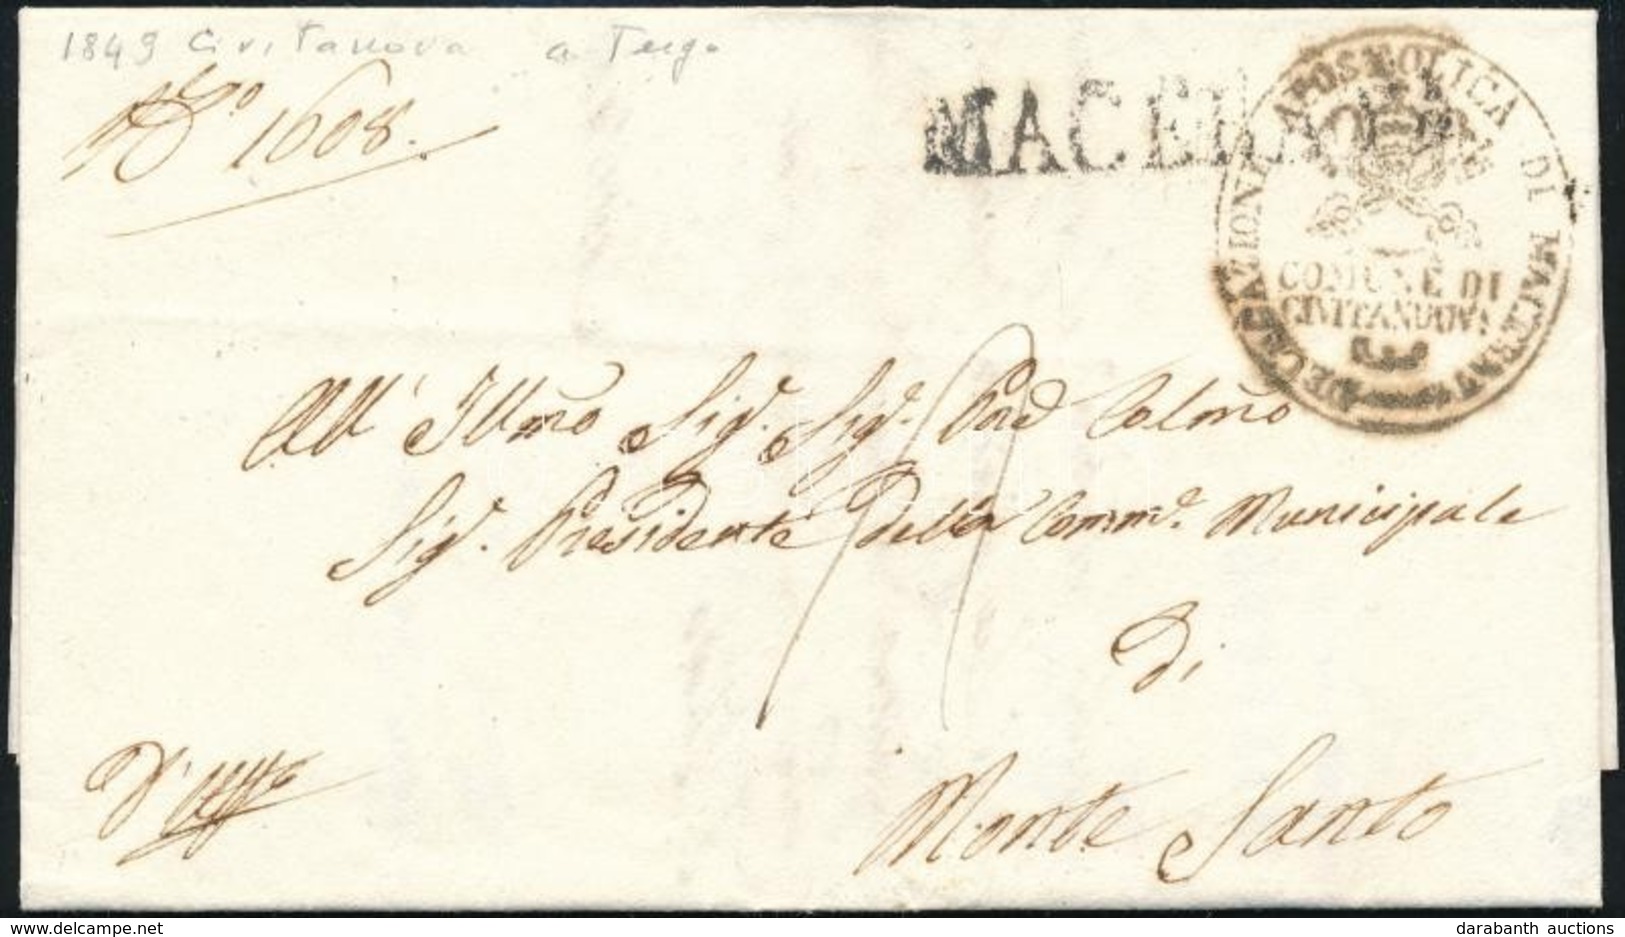 1849 Civitanova a Tergo
No 1608.
MACERATA
DELEGAZIONE APOSTOLICA DI MACERATA
COMUNE DI
CIVITANUOVA
All' Illmo Sig. Sig. Pne Colmo
Sig. Presidente della Comme. Municipale
di
Monte Santo
D'uffo
delcampe.net
darabanth auctions